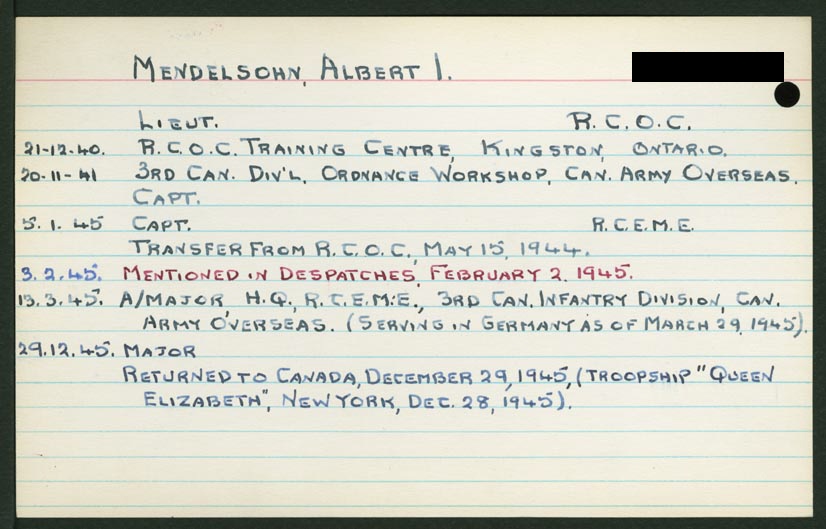 MENDELSOHN, ALBERT I.
LIEUT. R.C.O.C.
21-12-40. R.C.O.C. TRAINING CENTRE, KINGSTON, ONTARIO.
20-11-41 3RD CAN. DIV'L. ORDNANCE WORKSHOP, CAN. ARMY OVERSEAS.
CAPT.
5.1.45 CAPT. R.C.E.M.E.
TRANSFER FROM R.C.O.C., MAY 15, 1944.
3.2.45. MENTIONED IN DESPATCHES, FEBRUARY 2, 1945.
13.3.45. A/MAJOR H.Q., R.C.E.M.E., 3RD CAN. INFANTRY DIVISION, CAN.
ARMY OVERSEAS. (SERVING IN GERMANY AS OF MARCH 29, 1945).
29.12.45. MAJOR
RETURNED TO CANADA, DECEMBER 29, 1945, (TROOPSHIP "QUEEN
ELIZABETH", NEW YORK, DEC. 28, 1945).